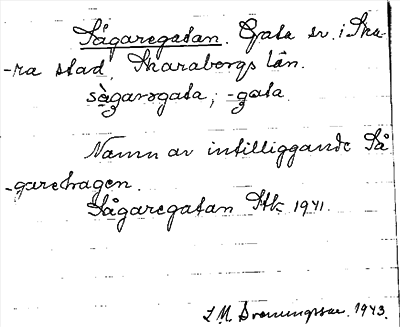 Sågaregatan. Gata sv. i Ska-
-ra stad, Skaraborgs län.
sågarəgata, -gata.
Namn av intilliggande Så-
-garehagen.
Sågaregatan Stk 1941.
L. M. 1943.